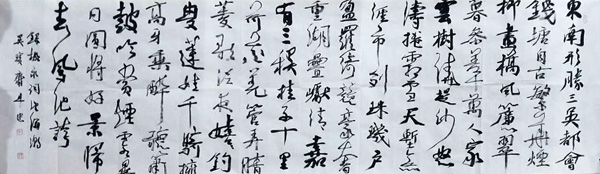 東南形勝三吳都會
錢塘自古繁華煙
柳畫橋風簾翠
幕參差十萬人家
雲樹繞堤沙怒
濤捲霜雪天塹無
涯市列珠璣戶
盈羅綺競豪奢
重湖疊巘清嘉
有三秋桂子十里
荷花羌管弄晴
菱歌泛夜嬉嬉釣
叟蓮娃千騎擁
高牙乘醉聽簫
鼓吟賞煙霞異
日圖將好景歸
去鳳池誇
錄柳永詞望海潮